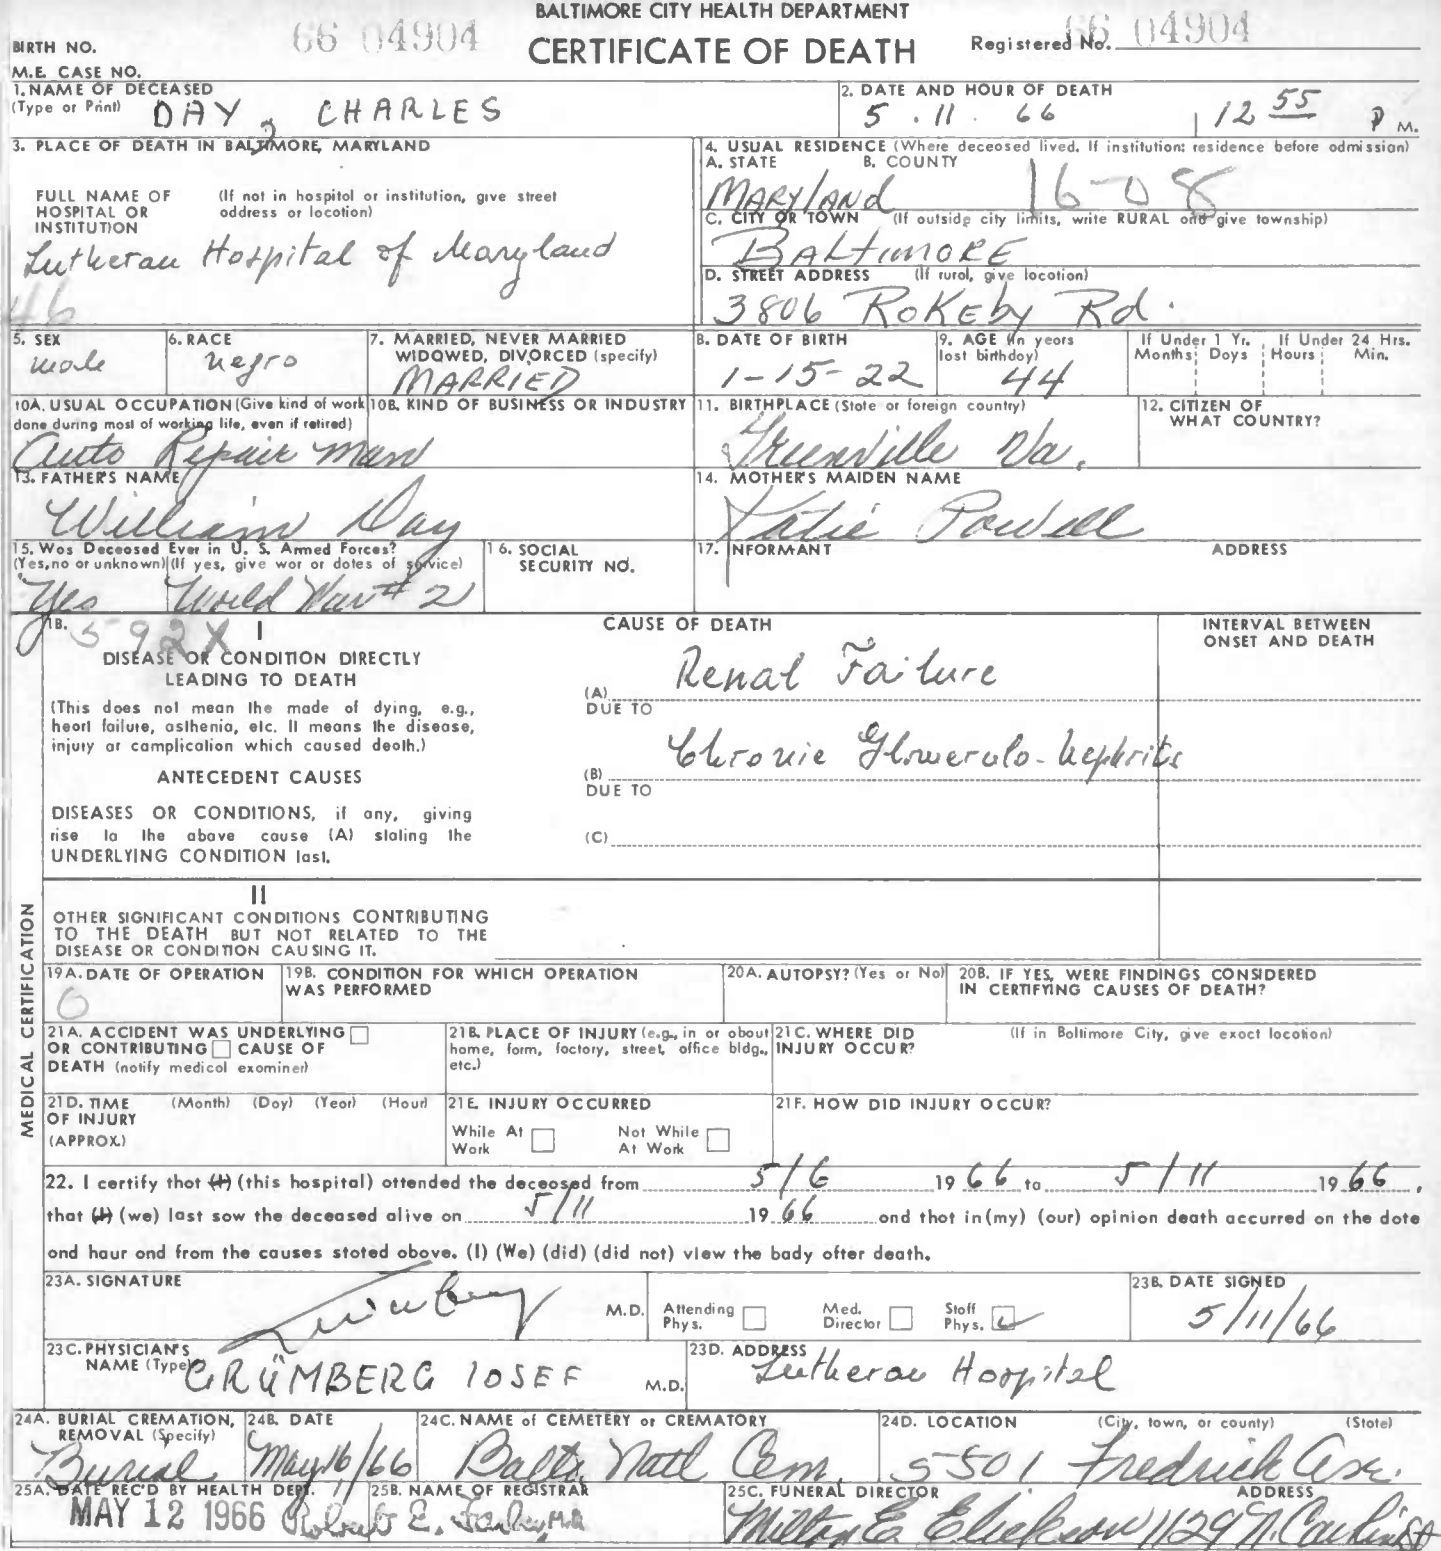 BALTIMORE CITY HEALTH DEPARTMENT
66 04904
CERTIFICATE OF DEATH
BIRTH NO.
Registered No. 66 04904
M.E. CASE NO.
1. NAME OF DECEASED
(Type or Print) DAY, CHARLES
2. DATE AND HOUR OF DEATH
5 . 11 . 66 12 55 P M.
3. PLACE OF DEATH IN BALTIMORE, MARYLAND
FULL NAME OF HOSPITAL OR INSTITUTION
(If not in hospital or institution, give street address or location)
Lutheran Hospital of Maryland
46
4. USUAL RESIDENCE (Where deceased lived. If institution: residence before admission)
A. STATE B. COUNTY
Maryland 16-08
C. CITY OR TOWN (If outside city limits, write RURAL and give township)
BALTIMORE
D. STREET ADDRESS (If rural, give location)
3806 Rokeby Rd.
5. SEX
male
6. RACE
negro
7. MARRIED, NEVER MARRIED
WIDOWED, DIVORCED (specify)
MARRIED
8. DATE OF BIRTH
1-15-22
9. AGE (In years
last birthday)
44
If Under 1 Yr. If Under 24 Hrs.
Months Days Hours Min.
10A. USUAL OCCUPATION (Give kind of work
done during most of working life, even if retired)
Auto Repair man
10B. KIND OF BUSINESS OR INDUSTRY
11. BIRTHPLACE (State or foreign country)
Greenville Va.
12. CITIZEN OF
WHAT COUNTRY?
13. FATHER'S NAME
William Day
14. MOTHER'S MAIDEN NAME
Katie Powell
15. Was Deceased Ever in U. S. Armed Forces?
(Yes, no or unknown) (If yes, give war or dates of service)
Yes World War # 2
16. SOCIAL
SECURITY NO.
17. INFORMANT ADDRESS
MEDICAL CERTIFICATION
18. 592X I
CAUSE OF DEATH
INTERVAL BETWEEN
ONSET AND DEATH
DISEASE OR CONDITION DIRECTLY
LEADING TO DEATH
(This does not mean the mode of dying, e.g.,
heart failure, asthenia, etc. It means the disease,
injury or complication which caused death.)
(A) Renal Failure
DUE TO
ANTECEDENT CAUSES
(B) Chronic Glomerulo-nephritis
DUE TO
DISEASES OR CONDITIONS, if any, giving
rise to the above cause (A) stating the
UNDERLYING CONDITION last.
(C)
II
OTHER SIGNIFICANT CONDITIONS CONTRIBUTING
TO THE DEATH BUT NOT RELATED TO THE
DISEASE OR CONDITION CAUSING IT.
19A. DATE OF OPERATION
0
19B. CONDITION FOR WHICH OPERATION
WAS PERFORMED
20A. AUTOPSY? (Yes or No)
20B. IF YES, WERE FINDINGS CONSIDERED
IN CERTIFYING CAUSES OF DEATH?
21A. ACCIDENT WAS UNDERLYING
OR CONTRIBUTING CAUSE OF
DEATH (notify medical examiner)
21B. PLACE OF INJURY (e.g., in or about
home, farm, factory, street, office bldg.,
etc.)
21C. WHERE DID (If in Baltimore City, give exact location)
INJURY OCCUR?
21D. TIME (Month) (Day) (Year) (Hour)
OF INJURY
(APPROX.)
21E. INJURY OCCURRED
While At Work Not While At Work
21F. HOW DID INJURY OCCUR?
22. I certify that (I) (this hospital) attended the deceased from 5/6 19 66 to 5/11 19 66,
that (I) (we) last saw the deceased alive on 5/11 19 66 and that in (my) (our) opinion death occurred on the date
and hour and from the causes stated above. (I) (We) (did) (did not) view the body after death.
23A. SIGNATURE
M.D. Attending Phys. Med. Director Staff Phys.
23B. DATE SIGNED
5/11/66
23C. PHYSICIAN'S
NAME (Type) GRÜMBERG IOSEF M.D.
23D. ADDRESS
Lutheran Hospital
24A. BURIAL CREMATION,
REMOVAL (Specify)
Burial
24B. DATE
May 16/66
24C. NAME of CEMETERY or CREMATORY
Balto. Natl Cem.
24D. LOCATION (City, town, or county) (State)
5501 Fredrick Ave.
25A. DATE REC'D BY HEALTH DEPT.
MAY 12 1966
25B. NAME OF REGISTRAR
Robert E. Farber, M.D.
25C. FUNERAL DIRECTOR ADDRESS
Milton E. 1129 N. Caroline St